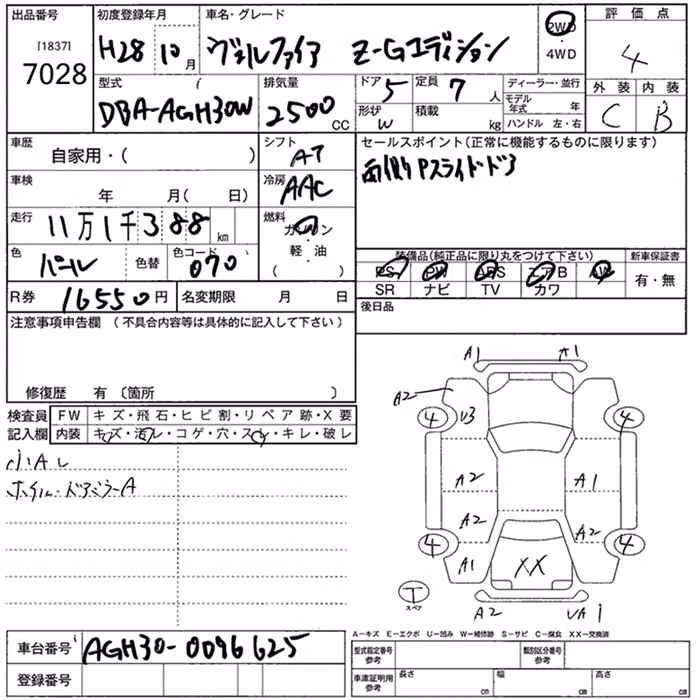 出品番号 初度登録年月 車名・グレード 2WD・4WD 評価点
[1837] 7028 H28 10月 ヴェルファイア Z-Gエディション 4
型式 排気量 ドア 5 定員 7人 ディーラー・並行 外装 内装
DBA-AGH30W 2500CC 形状 W 積載 kg モデル年式 年 C B
ハンドル 左・右
車歴 シフト セールスポイント(正常に機能するものに限ります)
自家用・( ) AT 両側Pスライドドア
車検 冷房
年 月( 日) AAC
走行 燃料
11万1千388km ガソリン
色 色替 色コード 軽・油 装備品(純正品に限り丸をつけて下さい) 新車保証書
パール 070 ( ) PS PW ABS エアB AW 有・無
R券 16550円 名変期限 月 日 SR ナビ TV カワ
注意事項申告欄 (不具合内容等は具体的に記入して下さい) 後日品
修復歴 有 〔箇所 〕
検査員 FW キズ・飛石・ヒビ割・リペア跡・X要
記入欄 内装 キズ・汚レ・コゲ・穴・スレ・キレ・破レ
小AU
ホイル・ドアミラーA
A1 A1
A2
4 U3 4
A2 A1
A2 A2
4 4
A1 XX
T
スペア
A2 UA1
A-キズ E-エクボ U-凹み W-補修跡 S-サビ C-腐食 XX-交換済
車台番号 AGH30-0096625 型式指定番号 参考 類別区分番号 参考
登録番号 車庫証明用 参考 長さ cm 幅 cm 高さ cm